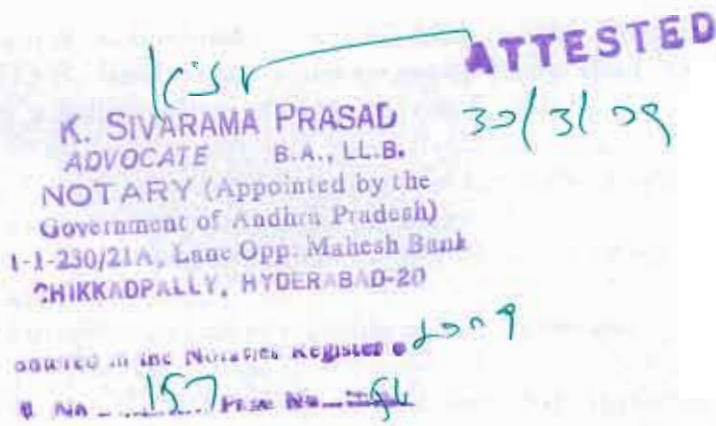 ATTESTED
KSV
30/3/09
K. SIVARAMA PRASAD
ADVOCATE B.A., LL.B.
NOTARY (Appointed by the
Government of Andhra Pradesh)
1-1-230/21A, Lane Opp. Mahesh Bank
CHIKKADPALLY, HYDERABAD-20
in the Notaries Register 2009
No 157 Page No 54